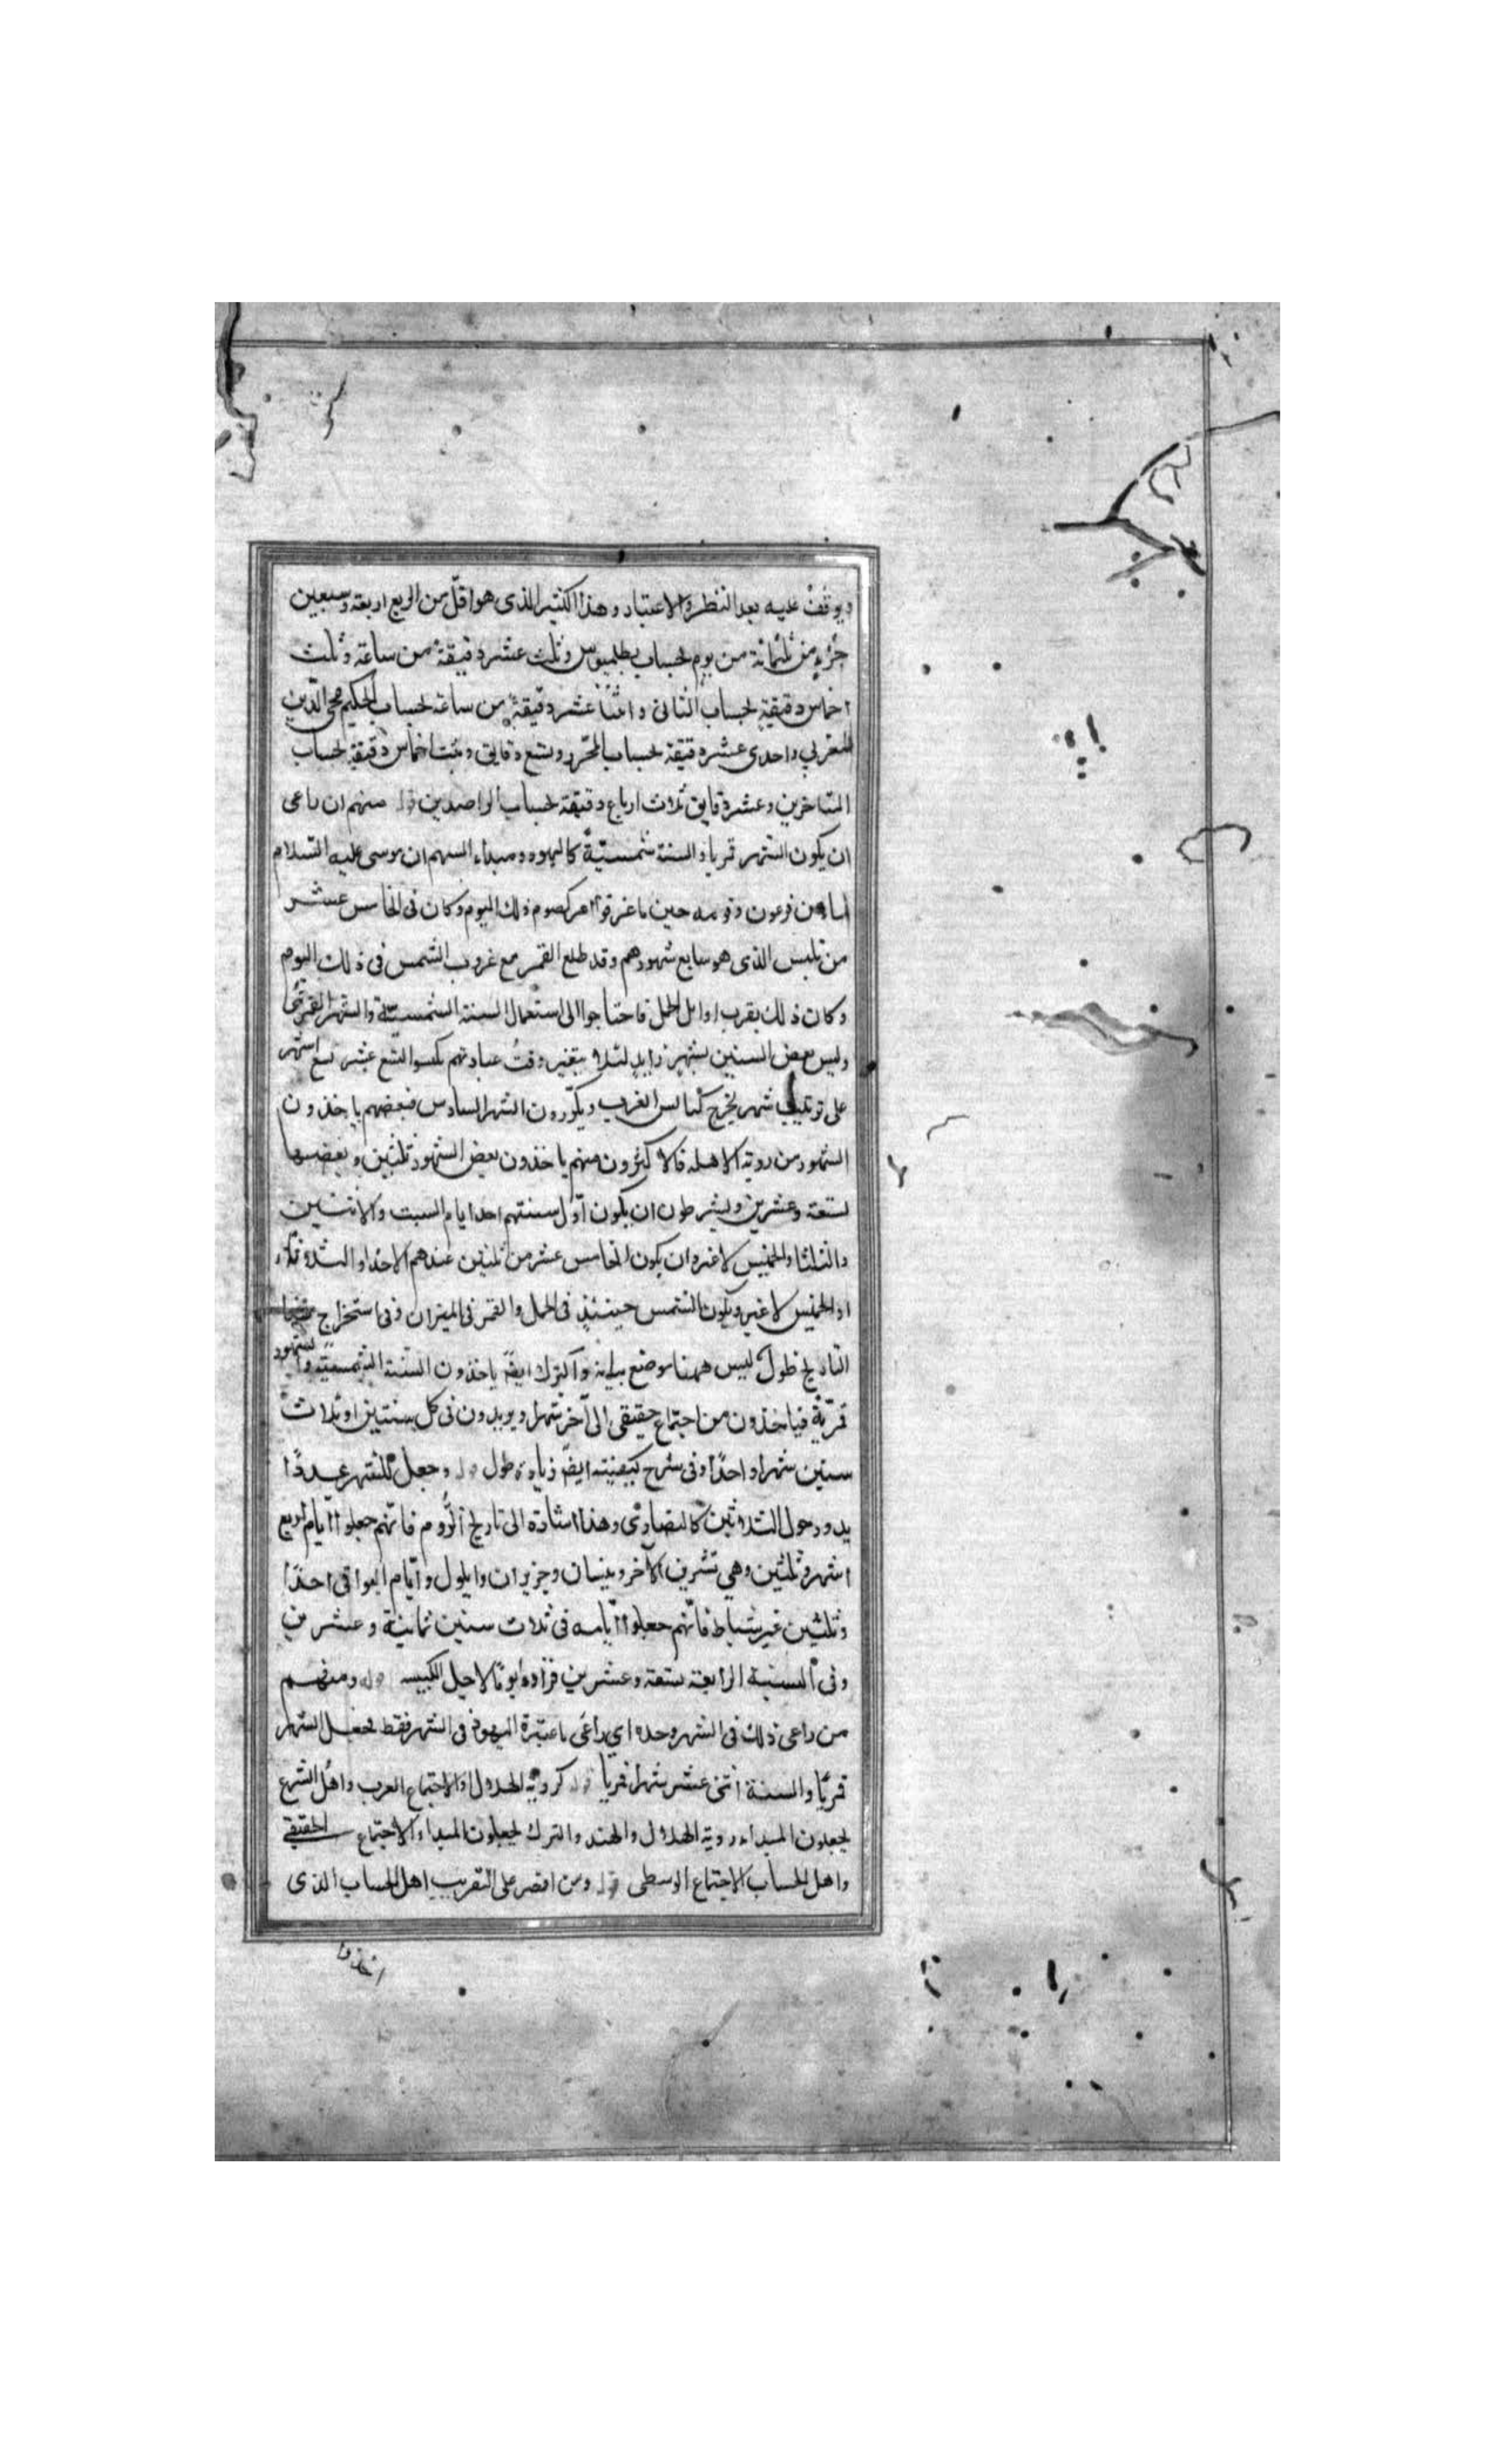 ويوقف عليه بعد النظر والاعتبار وهذا الكثير الذى هو اقلّ من الربع اربعة وسبعين
جزء من ثلثمائة من يوم لحساب بطلميوس وثلث عشر دقيقة من ساعة وثلث
اخماس دقيقة لحساب التانى واثنا عشر دقيقة من ساعة لحساب الحكيم محى الدّين
المغربي واحدى عشر دقيقة لحساب المحرر وتسع دقايق وثلث اخماس دقيقة لحساب
المتاخرين وعشر دقايق ثلاث ارباع دقيقة لحساب الراصدين قوله منهم ان راعى
ان يكون الشهر قمريا والسنة شمسيّة كاليهود ومبداء السهم ان موسى عليه السّلام
من فرعون وقومه حين ما غرقوا امر كصوم ذلك اليوم وكان فى الخامس عشر
من الذى هو سابع شهورهم وقد طلع القمر مع غروب الشمس فى ذلك اليوم
وكان ذلك بقرب اوايل الحمل فاحتاجوا الى استعمال السنة الشمسيّة والشهر القمرى
وليس بعض السنين بشهر زايد لئلا يتغير وقتُ عبادتهم كبسوا التسع عشر تسع اشهر
على ترتيب شهر يخرج كبائس العرب ويكررون الشهر السادس فبعضهم ياخذون
الشهور من روية الاهله فالاكثرون منهم ياخذون بعض الشهور ثلثين وبعضها
تسعة وعشرين ويشرطون ان يكون اوّل سنتهم احد ايام السبت والاثنين
والثلثا والخميس لا غير وان يكون الخامس عشر من عندهم الاحد او الثلاثاء
او الخميس لا غير ويكون الشمس حينئذ فى الحمل والقمر فى الميزان وفى استخراج
التاريخ طول ليس ههنا موضع بيانه والترك ايضًا ياخذون السنة الشمسيّة والشهور
قمريّة فياخذون من اجتماع حقيقى الى آخر شهرا ويزيدون فى كل سنتين او ثلاث
سنين شهرا واحدًا وفى شرح كيفيته ايضًا زيادة طول قوله وجعل للشهر عددًا
يدور حول الثلاثين كالنصارى وهذا اشارة الى تاريخ الرّوم فانهم جعلوا ايّام اربع
اشهر ثلثين وهي تشرين الآخر ونيسان وحزيران وايلول وايّام البواقى احدًا
وثلثين غير شباط فانّهم جعلوا ايّامه فى ثلاث سنين ثمانية وعشرين
وفى السنة الرابعة تسعة وعشرين فزادوا يومًا لاجل الكبيسه قوله ومنهم
من راعى ذلك فى الشهر وحده اي راعى ما عتبره اليهود فى الشهر فقط لجعل الشهر
قمريًا والسنة اثنى عشر شهرا قمريا قوله كروية الهلال او الاجتماع العرب واهل الشرع
يجعلون المبداء روية الهلال والهند والترك يجعلون المبداء الاجتماع الحقيقي
واهل الحساب الاجتماع الوسطى قوله ومن اقتصر على التقريب اهل الحساب الذى